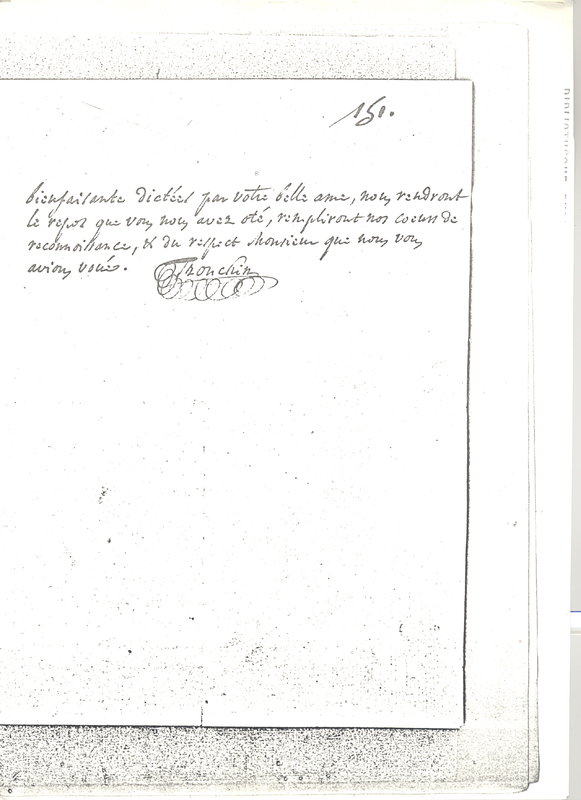 151.
bienfaisante dictées par votre belle ame, nous rendront
le repos que vous nous avez oté, rempliront nos coeurs de
reconnoissance, & du respect Monsieur que nous vous
avions voués.
Tronchin